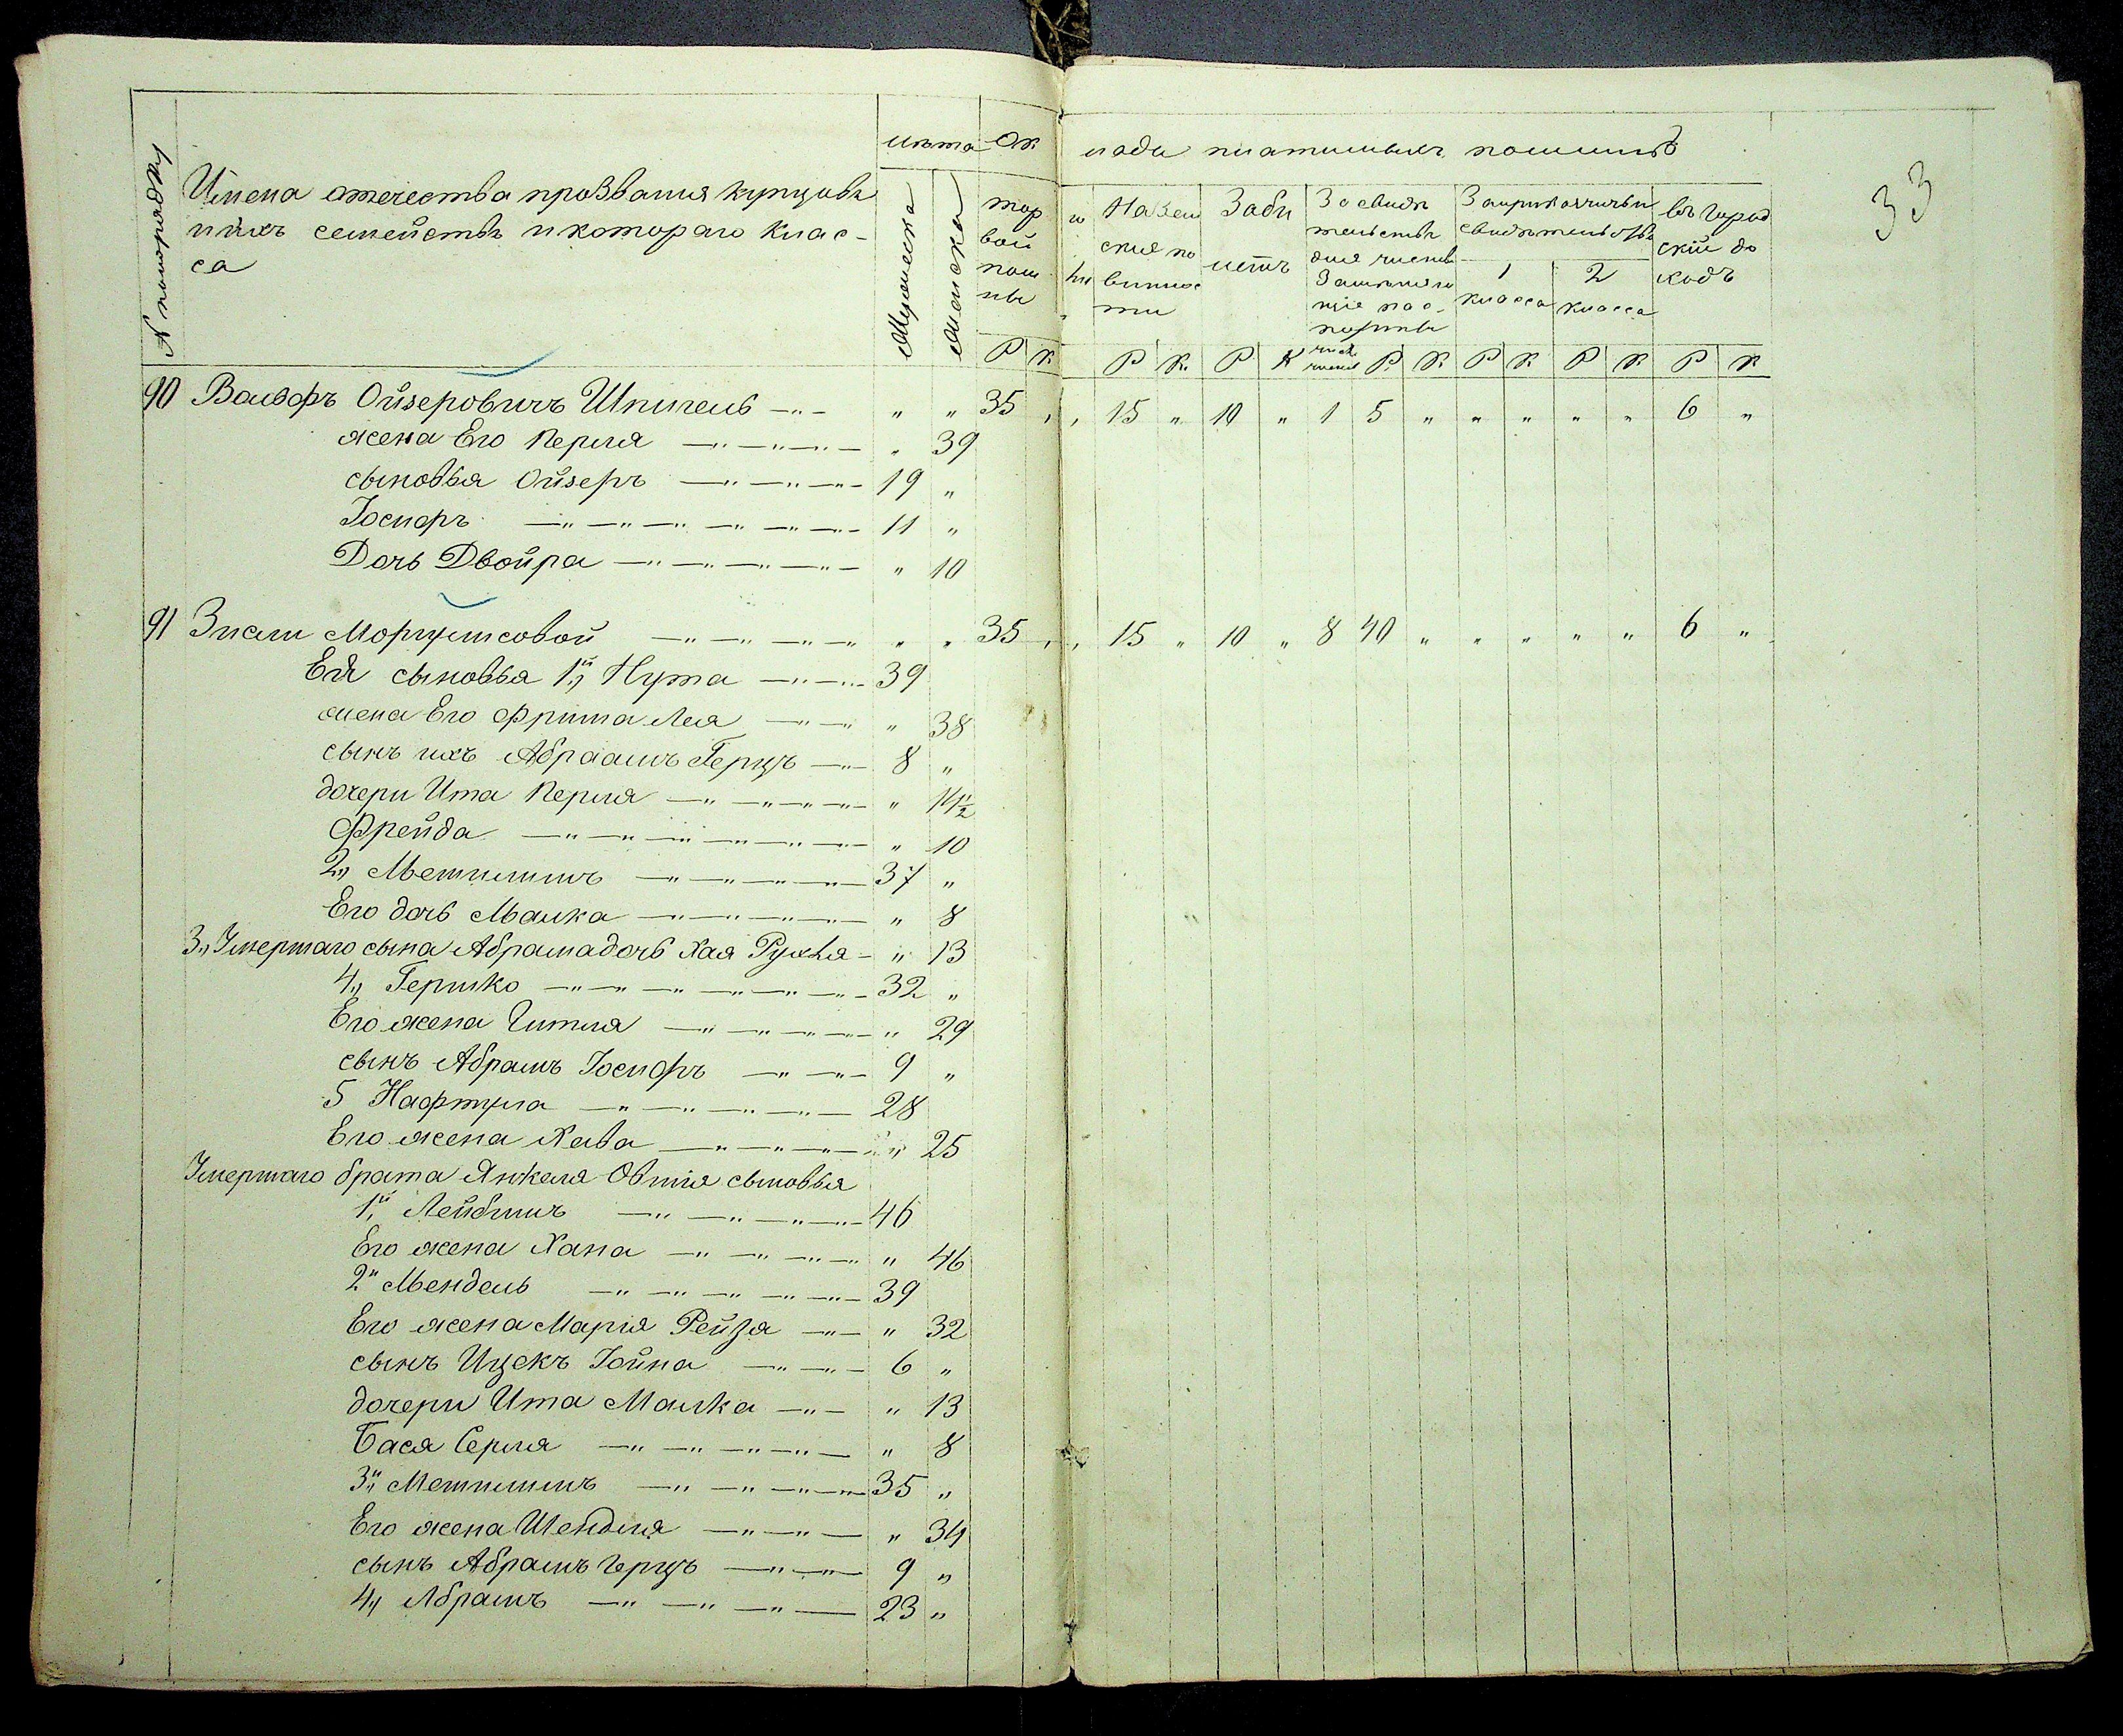 33
лѣта Ок лада платимыхъ пошлинъ
№ по порядку
Имена отечества прозвания купцовъ
и ихъ семействъ и котораго клас-
са
Мужеска
Женска
тор
вой
пош
ны
На зем
ския по
винос
ти
За би
летъ
За свидѣ
тельства
дня числ
класса
1
класса
2
класса
въ город
ский до
ходъ
Р К Р К Р К Р К Р К Р К Р К
90 Вольфъ Ойзеровичъ Шпигель — " — " " 35 " " 15 " 10 " 1 5 " " " " " 6 "
жена Его Перля — " — " — " — " 39
сыновья Ойзеръ — " — " — " — 19 "
Іосифъ — " — " — " — " — " — " — 11 "
Дочь Двойра — " — " — " — " — " 10
91 Знали Моргулисовой — " — " — " — " " 35 " " 15 " 10 " 8 40 " " " " " 6 "
Ея сыновья 1й Нута — " — " — 39
жена Его Фрима Лея — " — " " 38
сынъ ихъ Абраамъ Герцъ — " — 8 "
дочери Ита Перля — " — " — " — " — " 14½
Фрейда — " — " — " — " — " — " — " 10
2" — " — " — " — " — 37 "
Его дочь Малка — " — " — " — " — " 8
3" Умершаго сына Абрама дочь Хая Рухля — " 13
4" Гершко — " — " — " — " — " — " — 32 "
Его жена Гитля — " — " — " — " — " 29
сынъ Абрамъ Іосифъ — " — " — 9 "
5 Нафтула — " — " — " — " — 28
Его жена Хава — " — " — " — " — " 25
Умершаго брата Янкеля Овшія сыновья
1й Лейбишъ — " — " — " — " — 46
Его жена Хана — " — " — " — " — " 46
2й Мендель — " — " — " — " — " — 39
Его жена Марія Рейза — " — " 32
сынъ Ицекъ Іойна — " — " — 6 "
дочери Ита Малка — " — " 13
Бася Серля — " — " — " — " — " 8
3й — " — " — " — " — 35 "
Его жена Шейндля — " — " — " 34
сынъ Абрамъ Герцъ — " — " — 9 "
4" Абрамъ — " — " — " — 23 "